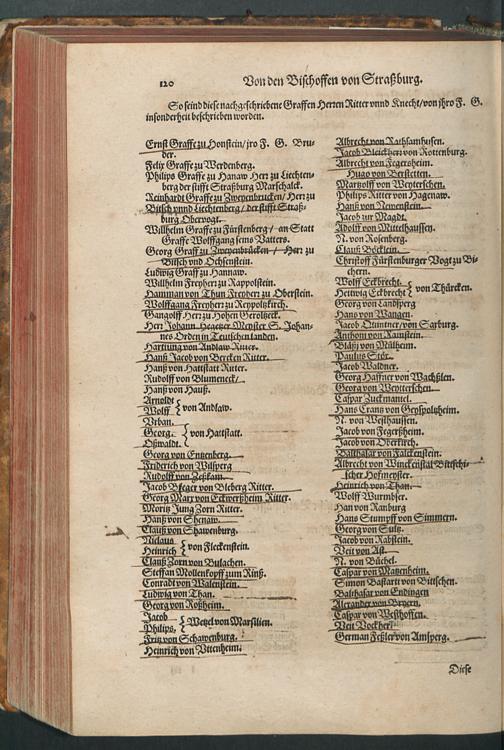 120 Von den Bischoffen von Straßburg.
So seind diese nachgeschriebene Graffen Herren Ritter vnnd Knecht/ von jhro F. G.
insonderheit beschrieben worden.
Ernst Graffe zu Honstein/ jro F. G. Bru-
der.
Felix Graffe zu Werdenberg.
Philips Graffe zu Hanaw Herr zu Liechten-
berg der stifft Straßburg Marschalck.
Reinhardt Graffe zu Zweyenbrucken/ Herr zu
Bitsch vnnd Liechtenberg/ der stifft Straß-
burg Obervogt.
Wilhelm Graffe zu Fürstenberg/ an Statt
Graffe Wolffgang seins Vatters.
Georg Graff zu Zweyenbrücken/ Herr zu
Bitsch vnd Ochsenstein.
Ludwig Graff zu Hannaw.
Wilhelm Freyherr zu Rappolstein.
Hamman von Thun Freyherr zu Oberstein.
Wolffgang Freyherr zu Reppoltzkirch.
Gangolff Herr zu Hohen Geroltzeck.
Herr Johann Hegetzer Meyster S. Johan-
nes Orden in Teutschen landen.
Hartung von Andlaw Ritter.
Hanß Jacob von Bercken Ritter.
Hanß von Hattstatt Ritter.
Rudolff von Blumeneck/
Hanß von Hauß.
Arnoldt
Wolff } von Andlaw.
Vrban
Georg.
Oßwaldt. } von Hattstatt.
Georg von Entzenberg.
Friderich von Wilsperg
Rudolff von Zeßkam.
Jacob Beger von Bleberg Ritter.
Georg Marx von Eckwerßheim Ritter.
Moritz Jung Zorn Ritter.
Hanß von Schenaw.
Clauß von Schawenburg.
Niclaus
Heinrich } von Fleckenstein.
Clauß Zorn von Bulachen.
Steffan Mollenkopff zum Rinß.
Conradt von Walenstein.
Ludwig von Than.
Georg von Roßheim.
Jacob
Philips, } Wetzel von Marsilien.
Fritz von Schawenburg.
Heinrich von Vttenheim.
Albrecht von Rathsamhusen.
Jacob Bleicker von Rottenburg.
Albrecht von Fegersheim.
Hugo von Berstetten.
Martzolff von Weyterschen.
Philips Ritter von Hagenaw.
Hanß von Newenstein.
Jacob zur Magdt.
Adolff von Mittelhaussen.
N. von Rosenberg.
Clauß Böcklin.
Christoff Fürstenburger Vogt zu Bi-
chern.
Wolff Eckbrecht
Heitwig Eckbrecht } von Thürcken.
Georg von Landsperg
Hans von Wangen.
Jacob Quintner/ von Sarburg.
Anthoni von Ramstein.
Bläsi von Mülheim.
Paulus Stör.
Jacob Waldner.
Georg Haffner von Wachßlen.
Georg von Weytterschet.
Caspar Zuckmantel.
Hans Crantz von Geyspoltzheim.
N. von Westhaussen.
Jacob von Fegerßheim.
Jacob von Oberkirch.
Balthasar von Falckenstein.
Albrecht von Winckenstal Bittschi-
scher Hofmeyster.
Heinrich von Than.
Wolff Wurmbser.
Han von Ranburg
Hans Stumpff von Simmern.
Georg von Sultz.
Jacob von Rabstein.
Veit von Ast.
N. von Büchel.
Caspar von Mattenheim.
Simon Bastart von Bittschen.
Balthasar von Endingen
Alexander von Bryern.
Caspar von Westhoffen.
Veit Böckher.
German Feßler von Amsperg.
Diese